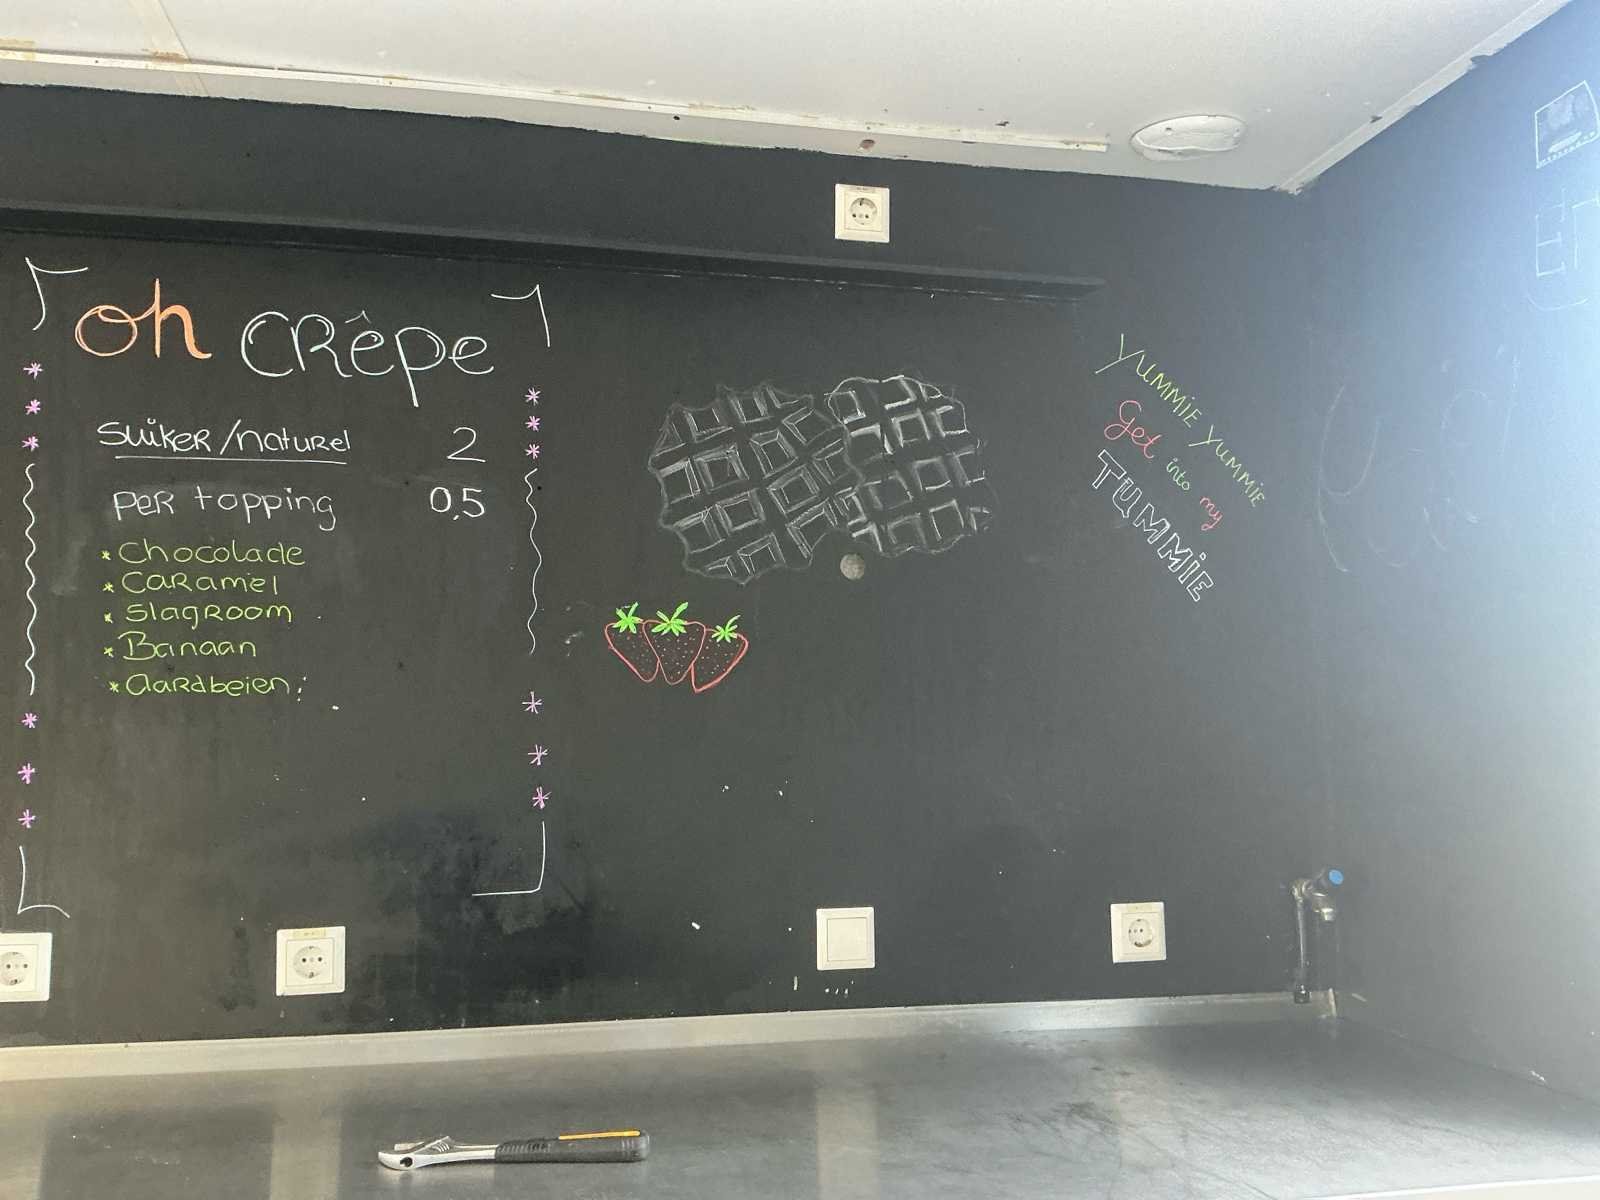 oh CRêpe
Suiker/naturel 2
per topping 0,5
* Chocolade
* Caramel
* Slagroom
* Banaan
* Aardbeien
Yummie Yummie
Get into my
TUMMiE